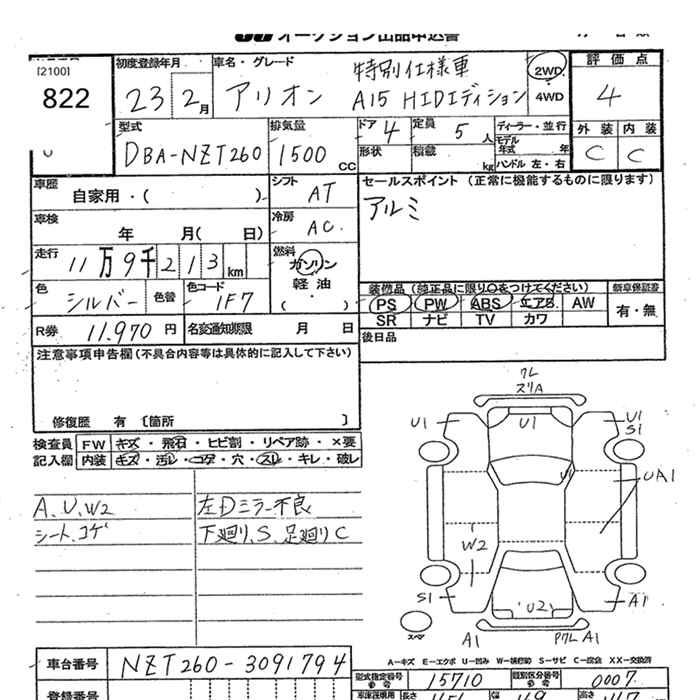 オークション出品申込書
[2100]
822
初度登録年月 23 2月
車名・グレード 特別仕様車
アリオン A15 HIDエディション
2WD 4WD
評価点 4
外装 内装
C C
型式 DBA-NZT260
排気量 1500 CC
ドア 4 定員 5 人
形状 積載 kg
ディーラー・並行
モデル年式 年
ハンドル 左・右
車歴 自家用・( )
シフト AT
セールスポイント (正常に機能するものに限ります)
アルミ
車検 年 月( 日)
冷房 AC
走行 11万9千213km
燃料 ガソリン
軽油・( )
色 シルバー 色替
色コード 1F7
装備品 (純正品に限り○をつけてください)
PS PW ABS エアB AW
SR ナビ TV カワ
新車保証書 有・無
R券 11,970 円
名変通知期限 月 日
後日品
注意事項申告欄 (不具合内容等は具体的に記入して下さい)
修復歴 有 〔箇所 〕
検査員 FW キズ・飛石・ヒビ割・リペア跡・×要
記入欄 内装 キズ・汚レ・コゲ・穴・スレ・キレ・破レ
A、U、W2
シート、コゲ
左Dミラー不良
下廻リ、S、足廻リC
ワレ
スリA
U1 U1 U1
S1
U1
UA1
W2
S1 U2 A1
スペア
A1 ワレ A1
A-キズ E-エクボ U-凹み W-補修跡 S-サビ C-腐食 XX-交換済
車台番号 NZT260-3091794
型式指定番号 15710
類別区分番号 0007
登録番号
長さ 幅 高さ